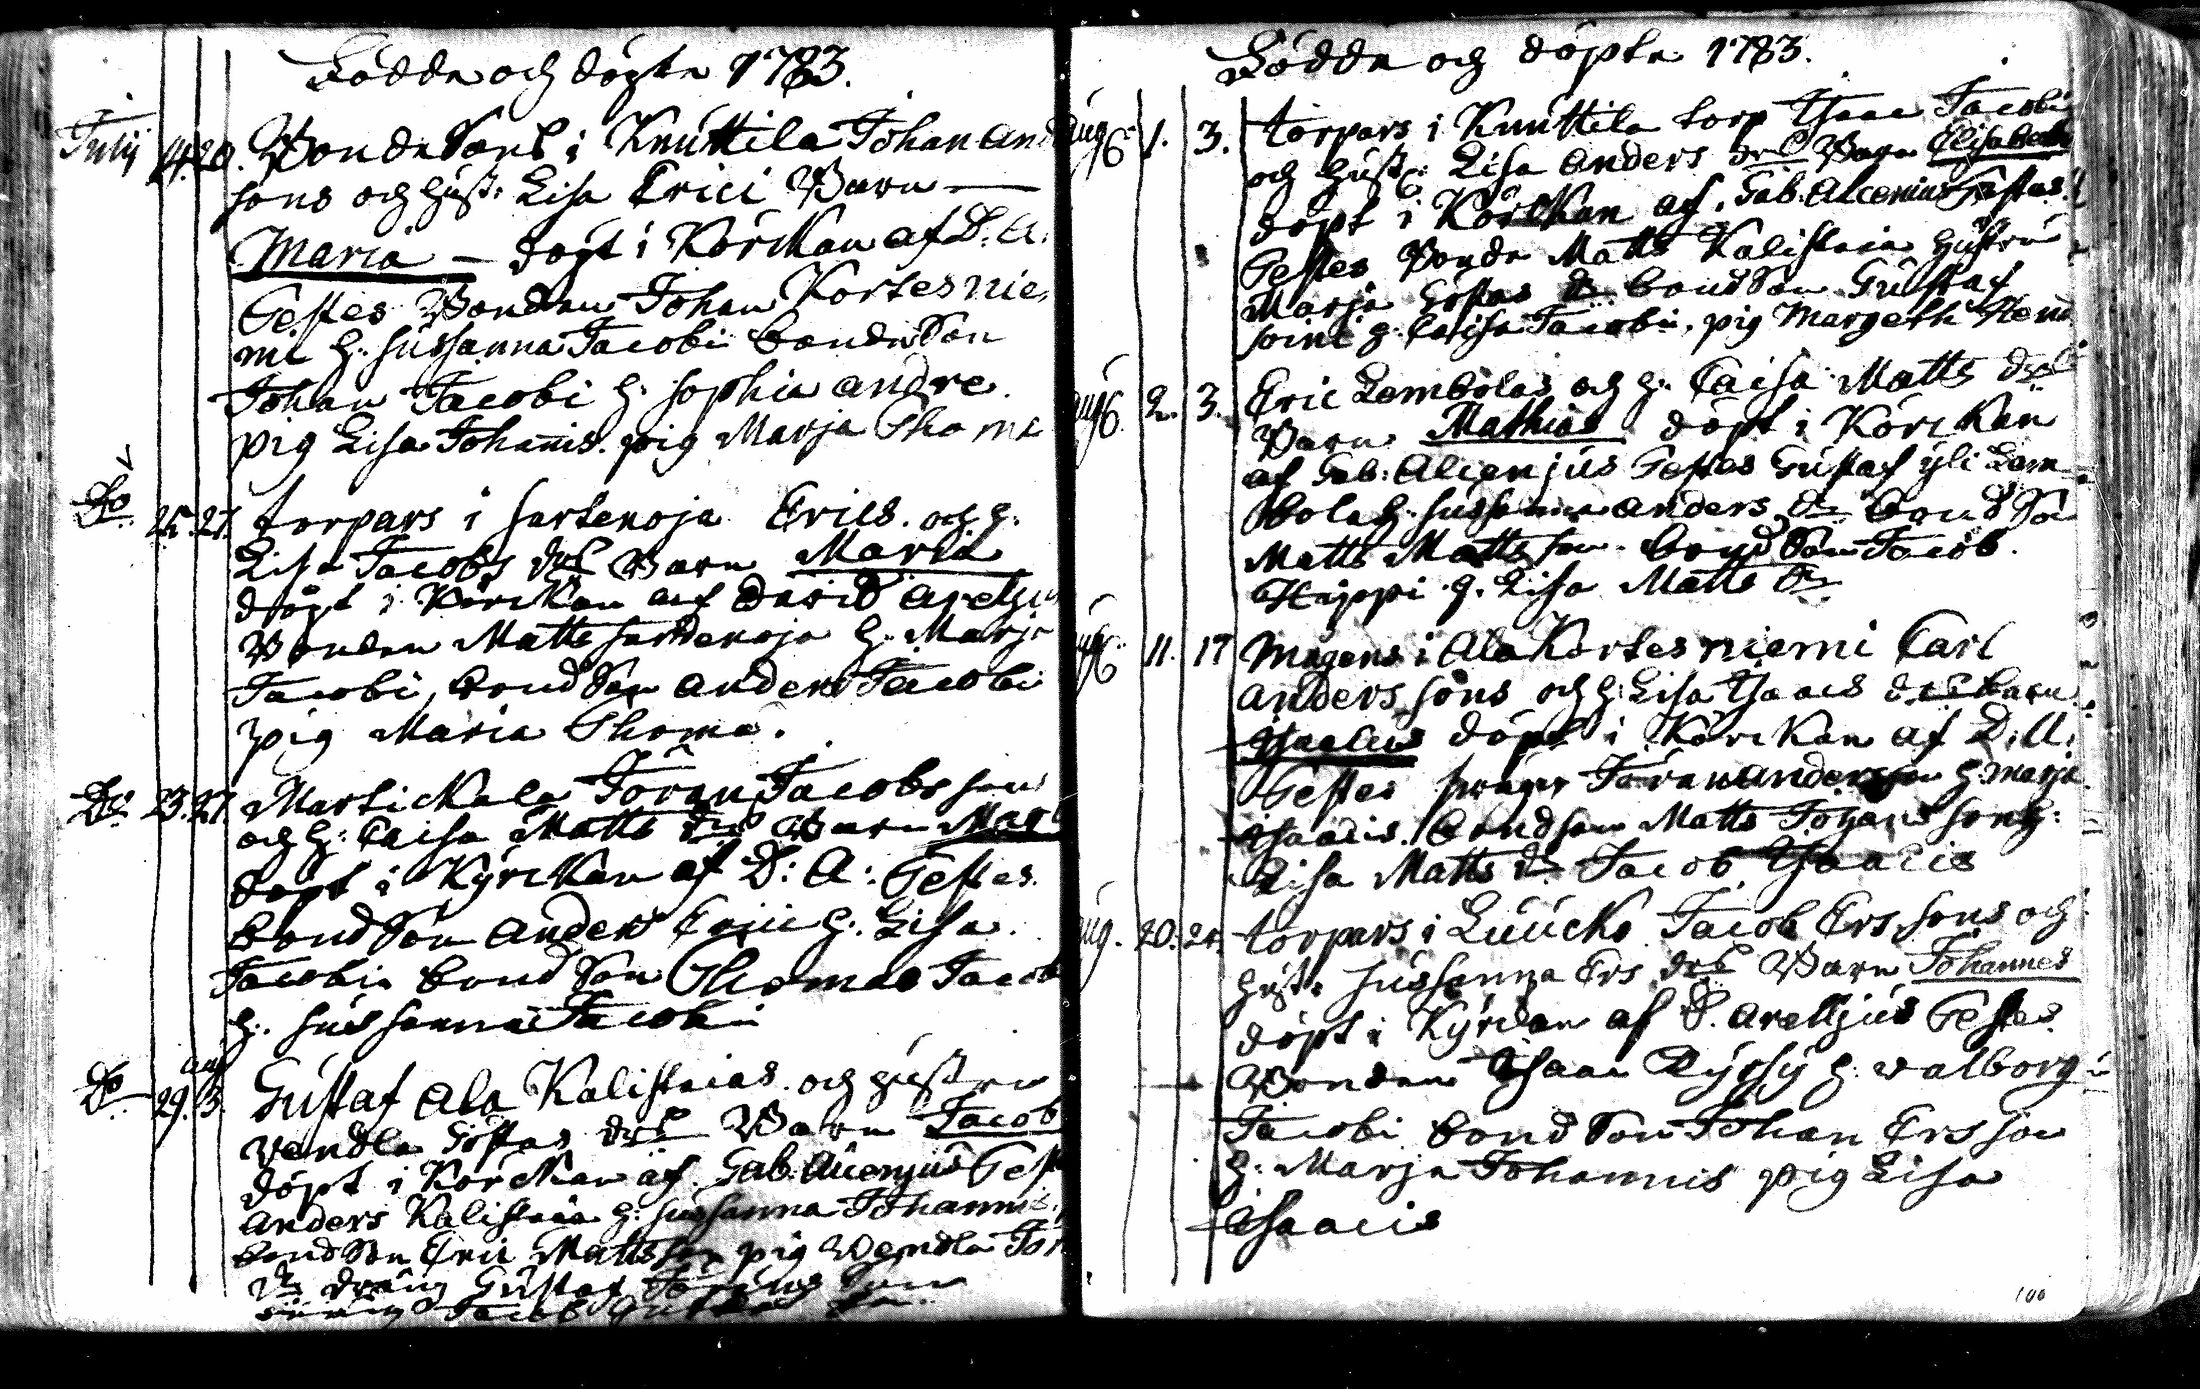 Födde och döpte 1783.
Julij 14. 20. Bonde Sons i Knuttila Johan And
sons och hust: Lisa Erici Barn
Maria döpt i Körckan af D: A:
Testes Bonden Johan Kortesnie
mi h: Sussanna Jacobi bonde Son
Johan Jacobi h: Sophia Andre
pig Lisa Johannis. pig Marja Thomæ
Do 25. 27. torpars i Sartenoja Erics. och h:
Lisa Jacobs drs Barn Maria
döpt i Körckan af David Aretzius
Bonden Matts Sartenoja h: Marja
Jacobi, bond Son Anders Jacobi
pig Maria Thomæ.
Do 23. 27. Martickala Jöran Jacobs son
och h: Caisa Matts drs Barn
döpt i Kyrckan af D: A: Testes
bond Son Anders Erici h: Lisa
Jacobi bond Son Thomas Jacob
h: Sussanna Jacobi
Do 29. aug 3. Gustaf Ala Kalistaias och hustru
Vendla Göstas drs Barn Jacob
döpt i Körckan af Gab: Alcenjus Test
Anders Kalistaia h: Sussanna Johannis
bond Son Eric Matts son pig Vendla
dr dräng Gustaf Jörans son
dräng Jacob
Födde och döpte 1783.
Aug 1. 3. torpars i Knuttila torp Isaac Jacobi
och hust: Lisa Anders drs Barn Elisabeth
döpt i Körckan af Gab: Alcenius Testes
Testes Bonde Matts Kalistaia hustru
Marja Göstas dr bond Son Gustaf
h: Caisa Jacobi, pig Margeth
Aug 2. 3. Eric Lembolas och h: Caisa Matts drs
Barn Mathias döpt i Körckan
af Gab: Alcenjus Testes Gustaf yli Lem
bola h: Sussanna Anders dr bond Son
Matts Matts son bond Son Jacob
Huppi h. Lisa Matts dr
Aug 11. 17 Mågens i Ala Kortesniemi Carl
Anders sons och h: Lisa Isaacs drs barn
Isacus döpt i Körckan af D: A:
Testes swåger Jöran Andersson h: Marja
Isaacis. bondson Matts Johansson h:
Lisa Matts dr Jacob Isaacis
Aug. 20. 24. torpars i Luucko Jacob Ers sons och
hust: Sussanna Ers drs Barn Johannes
döpt i Kyrckan af D. Aretzjus Testes
Bonden Isaac Pyssy h: Walborg
Jacobi bond Son Johan Ers son
h: Marja Johannis pig Lisa
Isaacis
100